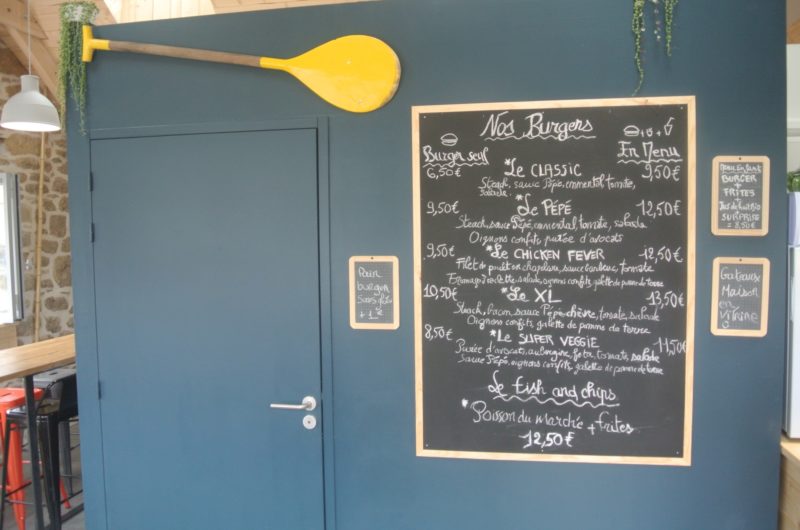 Nos Burgers
Burger seul
En Menu
6,50€ *Le CLASSIC 9,50€
Steack, sauce Pépé, emmental, tomate,
salade.
9,50€ *Le PÉPÉ 12,50€
Steack, sauce Pépé, emmental, tomate, salade
Oignons confits, purée d'avocats
9,50€ *Le CHICKEN FEVER 12,50€
Filet de poulet en chapelure, sauce barbecue, tomate
Fromage à raclette, salade, oignons confits, galette de pomme de terre
10,50€ *Le XL 13,50€
Steack, bacon, sauce Pépé, chèvre, tomate, salade
Oignons confits, galette de pomme de terre
8,50€ *Le SUPER VEGGIE 11,50€
Purée d'avocats, aubergine, feta, tomate, salade
Sauce Pépé, oignons confits, galette de pomme de terre
Le Fish and chips
*Poisson du Marché + frites
12,50€
Pain
burger
Sans gluten
+ 1€
Menu Enfant
BURGER
+
FRITES
Jus de fruit Bio
SURPRISE
= 8,50€
Gateaux
Maison
en
Vitrine